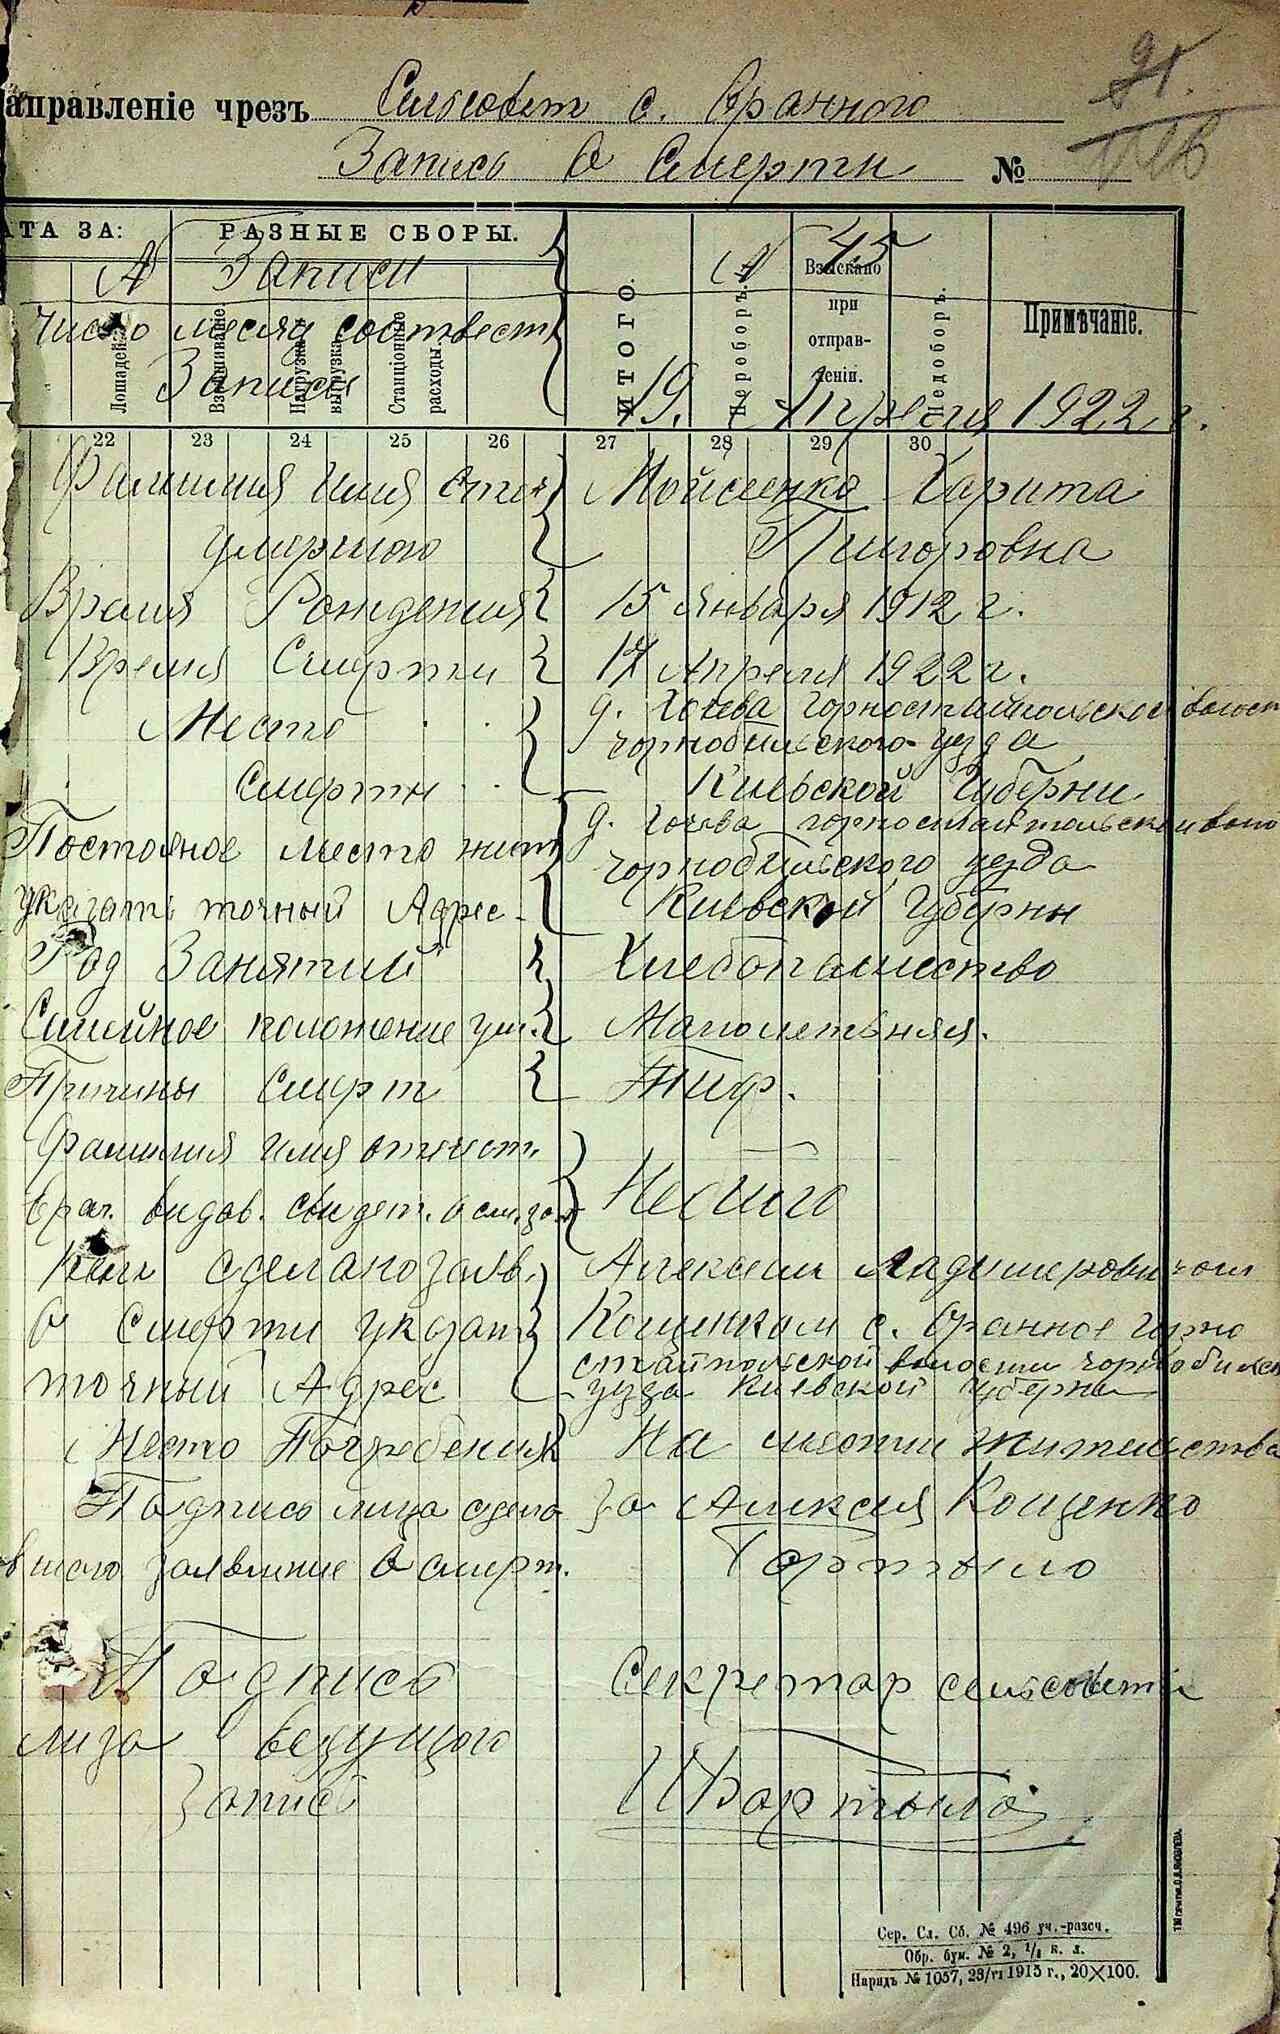 аправленіе чрезъ Сельсовет с. Оранного
Запись о Смерти №
АТА ЗА: РАЗНЫЕ СБОРЫ.
№ Записи № 45
Число месяц соответст
Записи 19. Апреля 1922 г.
Лошадей. Взвѣшиваніе. Нагрузка и выгрузка. Станціонные расходы. ИТОГО. Переборъ. Взыскано при отправленіи. Недоборъ. Примѣчаніе.
22 23 24 25 26 27 28 29 30
Фамилия Имя Отч. Мойсеенко Харита
умершого Пигоровна
Время Рождения 15 Января 1912 г.
Время Смерти 17 Апреля 1922 г.
Место д. Гочева Горностайпольской волост
чорнобильского уезда
Смерти Киевской Губерни
д. Гочева горностайпольской воло
Постояное место жит чорнобильского уезда
указать точный Адрес Киевской Губерни
Род Занятий Хлебопашество
Семейное положение ум. Малолетьняя.
Причины Смерт Тиф.
Фамилия Имя отчест.
врач. видав. свидет. о см. Небыло
Кем сделано заяв. Алексеем Ладимеровичом
о Смерти указат Кощенком с. Оранное Горно
стайпольской волости чорнобильск
точный Адрес уезда Киевской Губерни
Место Погребения На мести жительства
Подпись лица сдела за Алексея Кощенко
вшого заявление о смерт. Фортыло
Подпись Секретар сельсовета
лиза ведущого
Запись И Фортыло
Сер. Сл. Сб. № 496 уч.-разсч.
Обр. бум. № 2, 1/1 к. л.
Нарядъ № 1057, 23/VI 1915 г., 20×100.